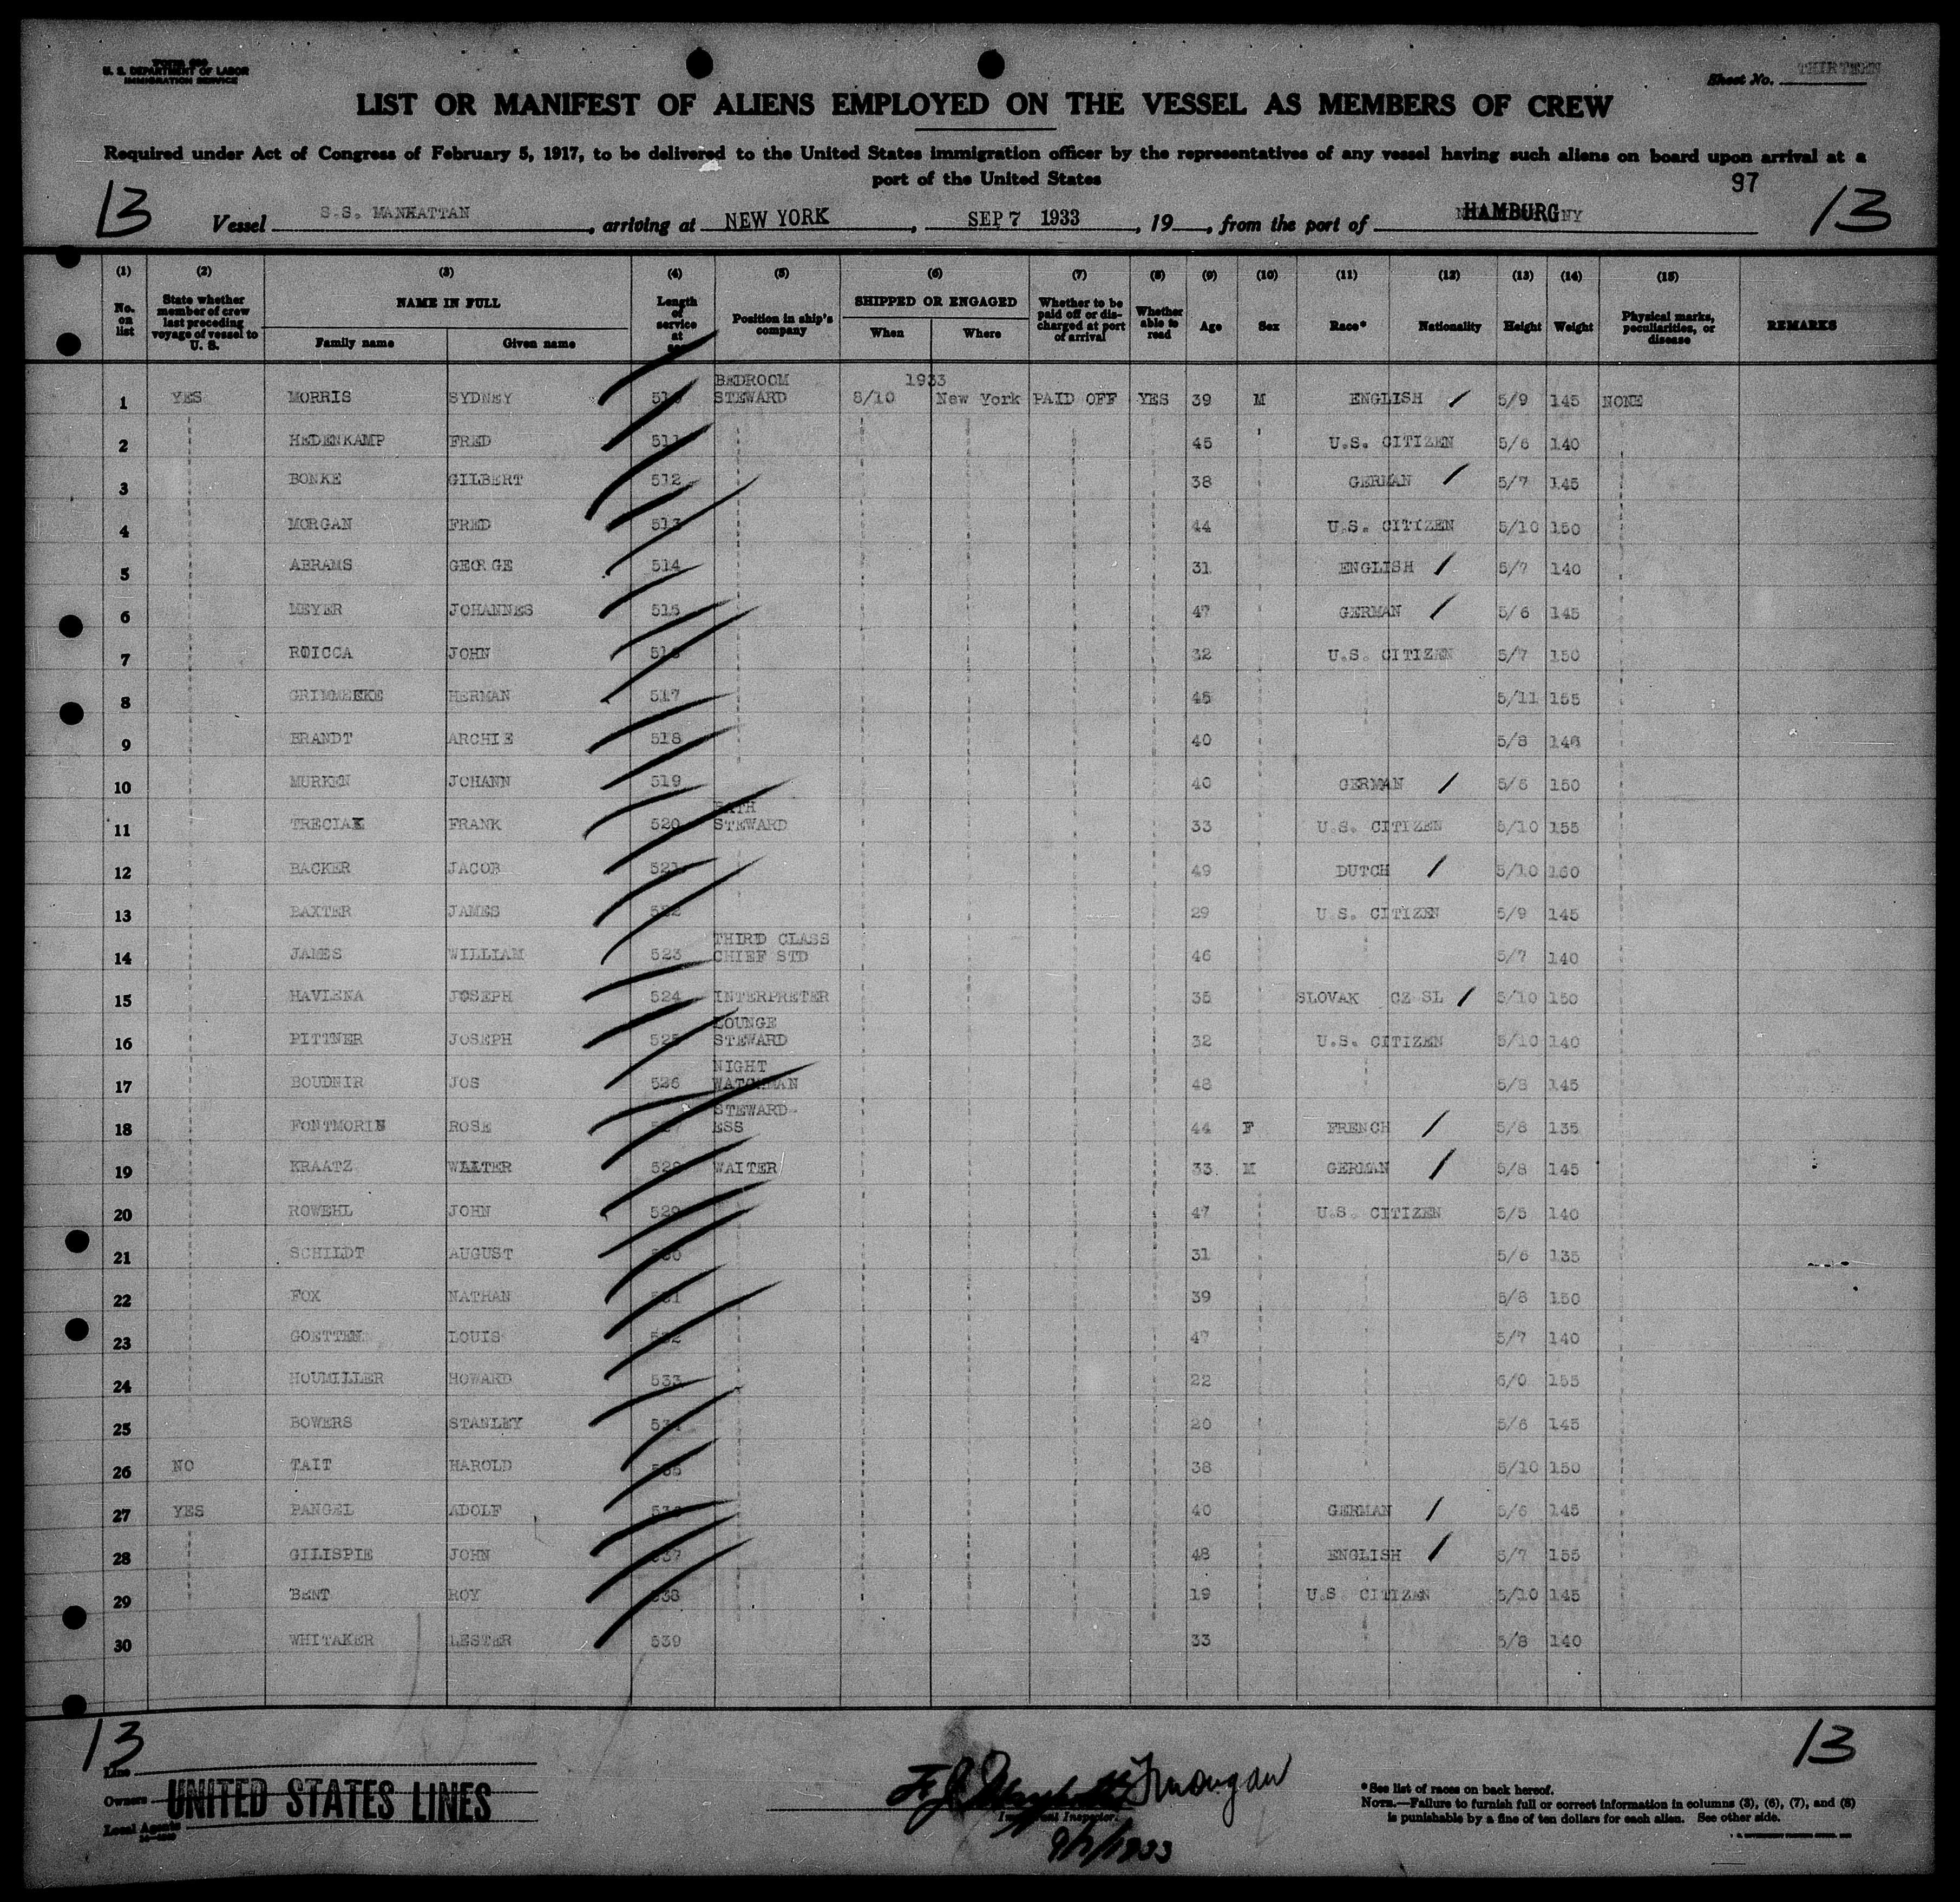 U. S. DEPARTMENT OF LABOR
IMMIGRATION SERVICE
Sheet No. THIRTEEN
LIST OR MANIFEST OF ALIENS EMPLOYED ON THE VESSEL AS MEMBERS OF CREW
Required under Act of Congress of February 5, 1917, to be delivered to the United States immigration officer by the representatives of any vessel having such aliens on board upon arrival at a
port of the United States
97
13 Vessel S.S. MANHATTAN, arriving at NEW YORK, SEP 7 1933, 19, from the port of HAMBURG 13
(1) (2) (3) (4) (5) (6) (7) (8) (9) (10) (11) (12) (13) (14) (15)
No. on list State whether member of crew last preceding voyage of vessel to U. S. NAME IN FULL Family name Given name Length of service at sea Position in ship's company SHIPPED OR ENGAGED When Where Whether to be paid off or discharged at port of arrival Whether able to read Age Sex Race* Nationality Height Weight Physical marks, peculiarities, or disease REMARKS
BEDROOM 1933
1 YES MORRIS SYDNEY 510 STEWARD 8/10 New York PAID OFF YES 39 M ENGLISH 5/9 145 NONE
2 HEDENKAMP FRED 511 45 U.S. CITIZEN 5/6 140
3 BONKE GILBERT 512 38 GERMAN 5/7 145
4 MORGAN FRED 513 44 U.S. CITIZEN 5/10 150
5 ABRAMS GEORGE 514 31 ENGLISH 5/7 140
6 MEYER JOHANNES 515 47 GERMAN 5/6 145
7 ROICCA JOHN 516 32 U.S. CITIZEN 5/7 150
8 GRIMMEEKE HERMAN 517 45 5/11 155
9 BRANDT ARCHIE 518 40 5/8
10 MURKEN JOHANN 519 40 GERMAN 5/5 150
BATH
11 TRECIAK FRANK 520 STEWARD 33 U.S. CITIZEN 5/10 155
12 BACKER JACOB 521 49 DUTCH 5/10 160
13 BAXTER JAMES 522 29 U.S. CITIZEN 5/9 145
THIRD CLASS
14 JAMES WILLIAM 523 CHIEF STD 46 5/7 140
15 HAVLENA JOSEPH 524 INTERPRETER 35 SLOVAK CZ SL 5/10 150
LOUNGE
16 PITTNER JOSEPH 525 STEWARD 32 U.S. CITIZEN 5/10 140
NIGHT
17 BOUDNIR JOS 526 WATCHMAN 48 5/8 145
STEWARD-
18 FONTMORIN ROSE 527 ESS 44 F FRENCH 5/8 135
19 KRAATZ WALTER 528 WAITER 33 M GERMAN 5/8 145
20 ROWEHL JOHN 529 47 U.S. CITIZEN 5/5 140
21 SCHILDT AUGUST 530 31 5/6 135
22 FOX NATHAN 531 39 5/8 150
23 GOETTEN LOUIS 532 47 5/7 140
24 HOUMILLER HOWARD 533 22 6/0 155
25 BOWERS STANLEY 534 20 5/6 145
26 NO TAIT HAROLD 535 38 5/10 150
27 YES PANGEL ADOLF 536 40 GERMAN 5/6 145
28 GILISPIE JOHN 537 48 ENGLISH 5/7 155
29 BENT ROY 538 19 U.S CITIZEN 5/10 145
30 WHITAKER LESTER 539 33 5/8 140
13 13
Line
Owners UNITED STATES LINES
Local Agents
Immigrant Inspector.
9/7/1933
*See list of races on back hereof.
NOTE.—Failure to furnish full or correct information in columns (3), (6), (7), and (8)
is punishable by a fine of ten dollars for each alien. See other side.